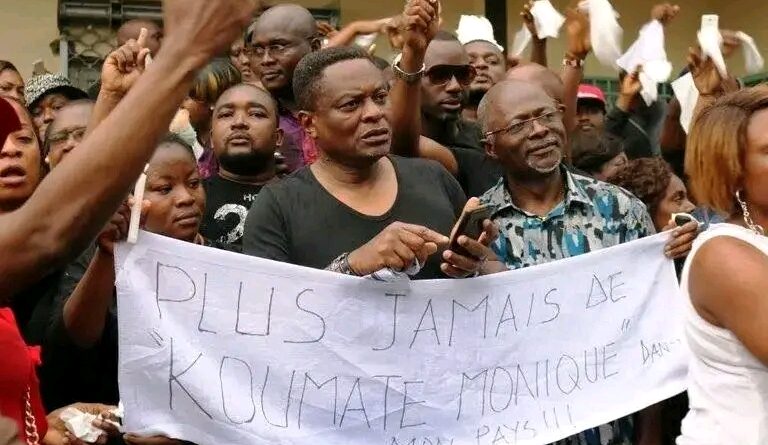 PLUS JAMAIS DE
"KOUMATE MONIQUE" DANS
MON PAYS!!!
HO
23